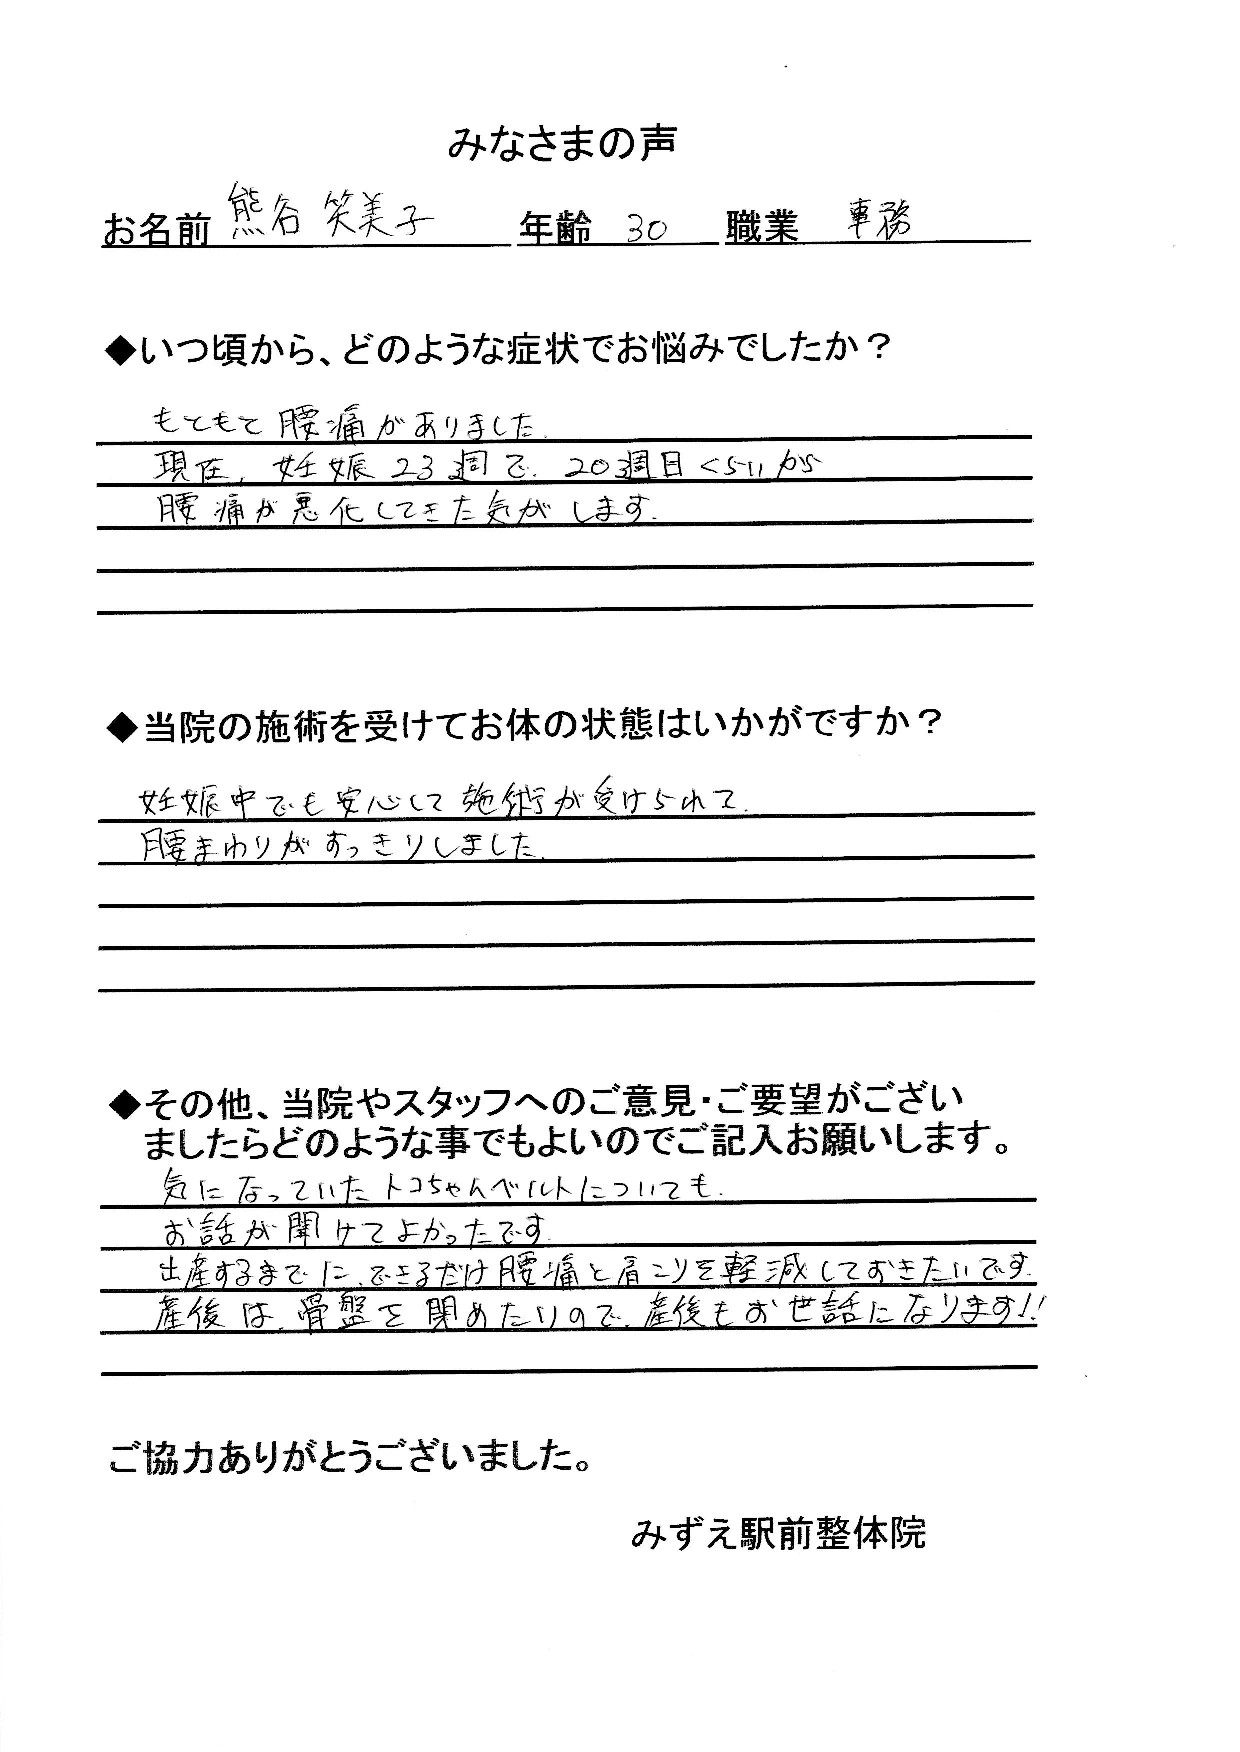 みなさまの声
お名前 熊谷 笑美子 年齢 30 職業 事務
◆いつ頃から、どのような症状でお悩みでしたか？
もともと腰痛がありました.
現在, 妊娠23週で、20週目くらいから
腰痛が悪化してきた気がします.
◆当院の施術を受けてお体の状態はいかがですか？
妊娠中でも安心して施術が受けられて、
腰まわりがすっきりしました.
◆その他、当院やスタッフへのご意見・ご要望がござい
ましたらどのような事でもよいのでご記入お願いします。
気になっていたトコちゃんベルトについても、
お話が聞けてよかったです.
出産するまでに、できるだけ腰痛と肩こりを軽減しておきたいです.
産後は、骨盤を閉めたいので、産後もお世話になります!!
ご協力ありがとうございました。
みずえ駅前整体院